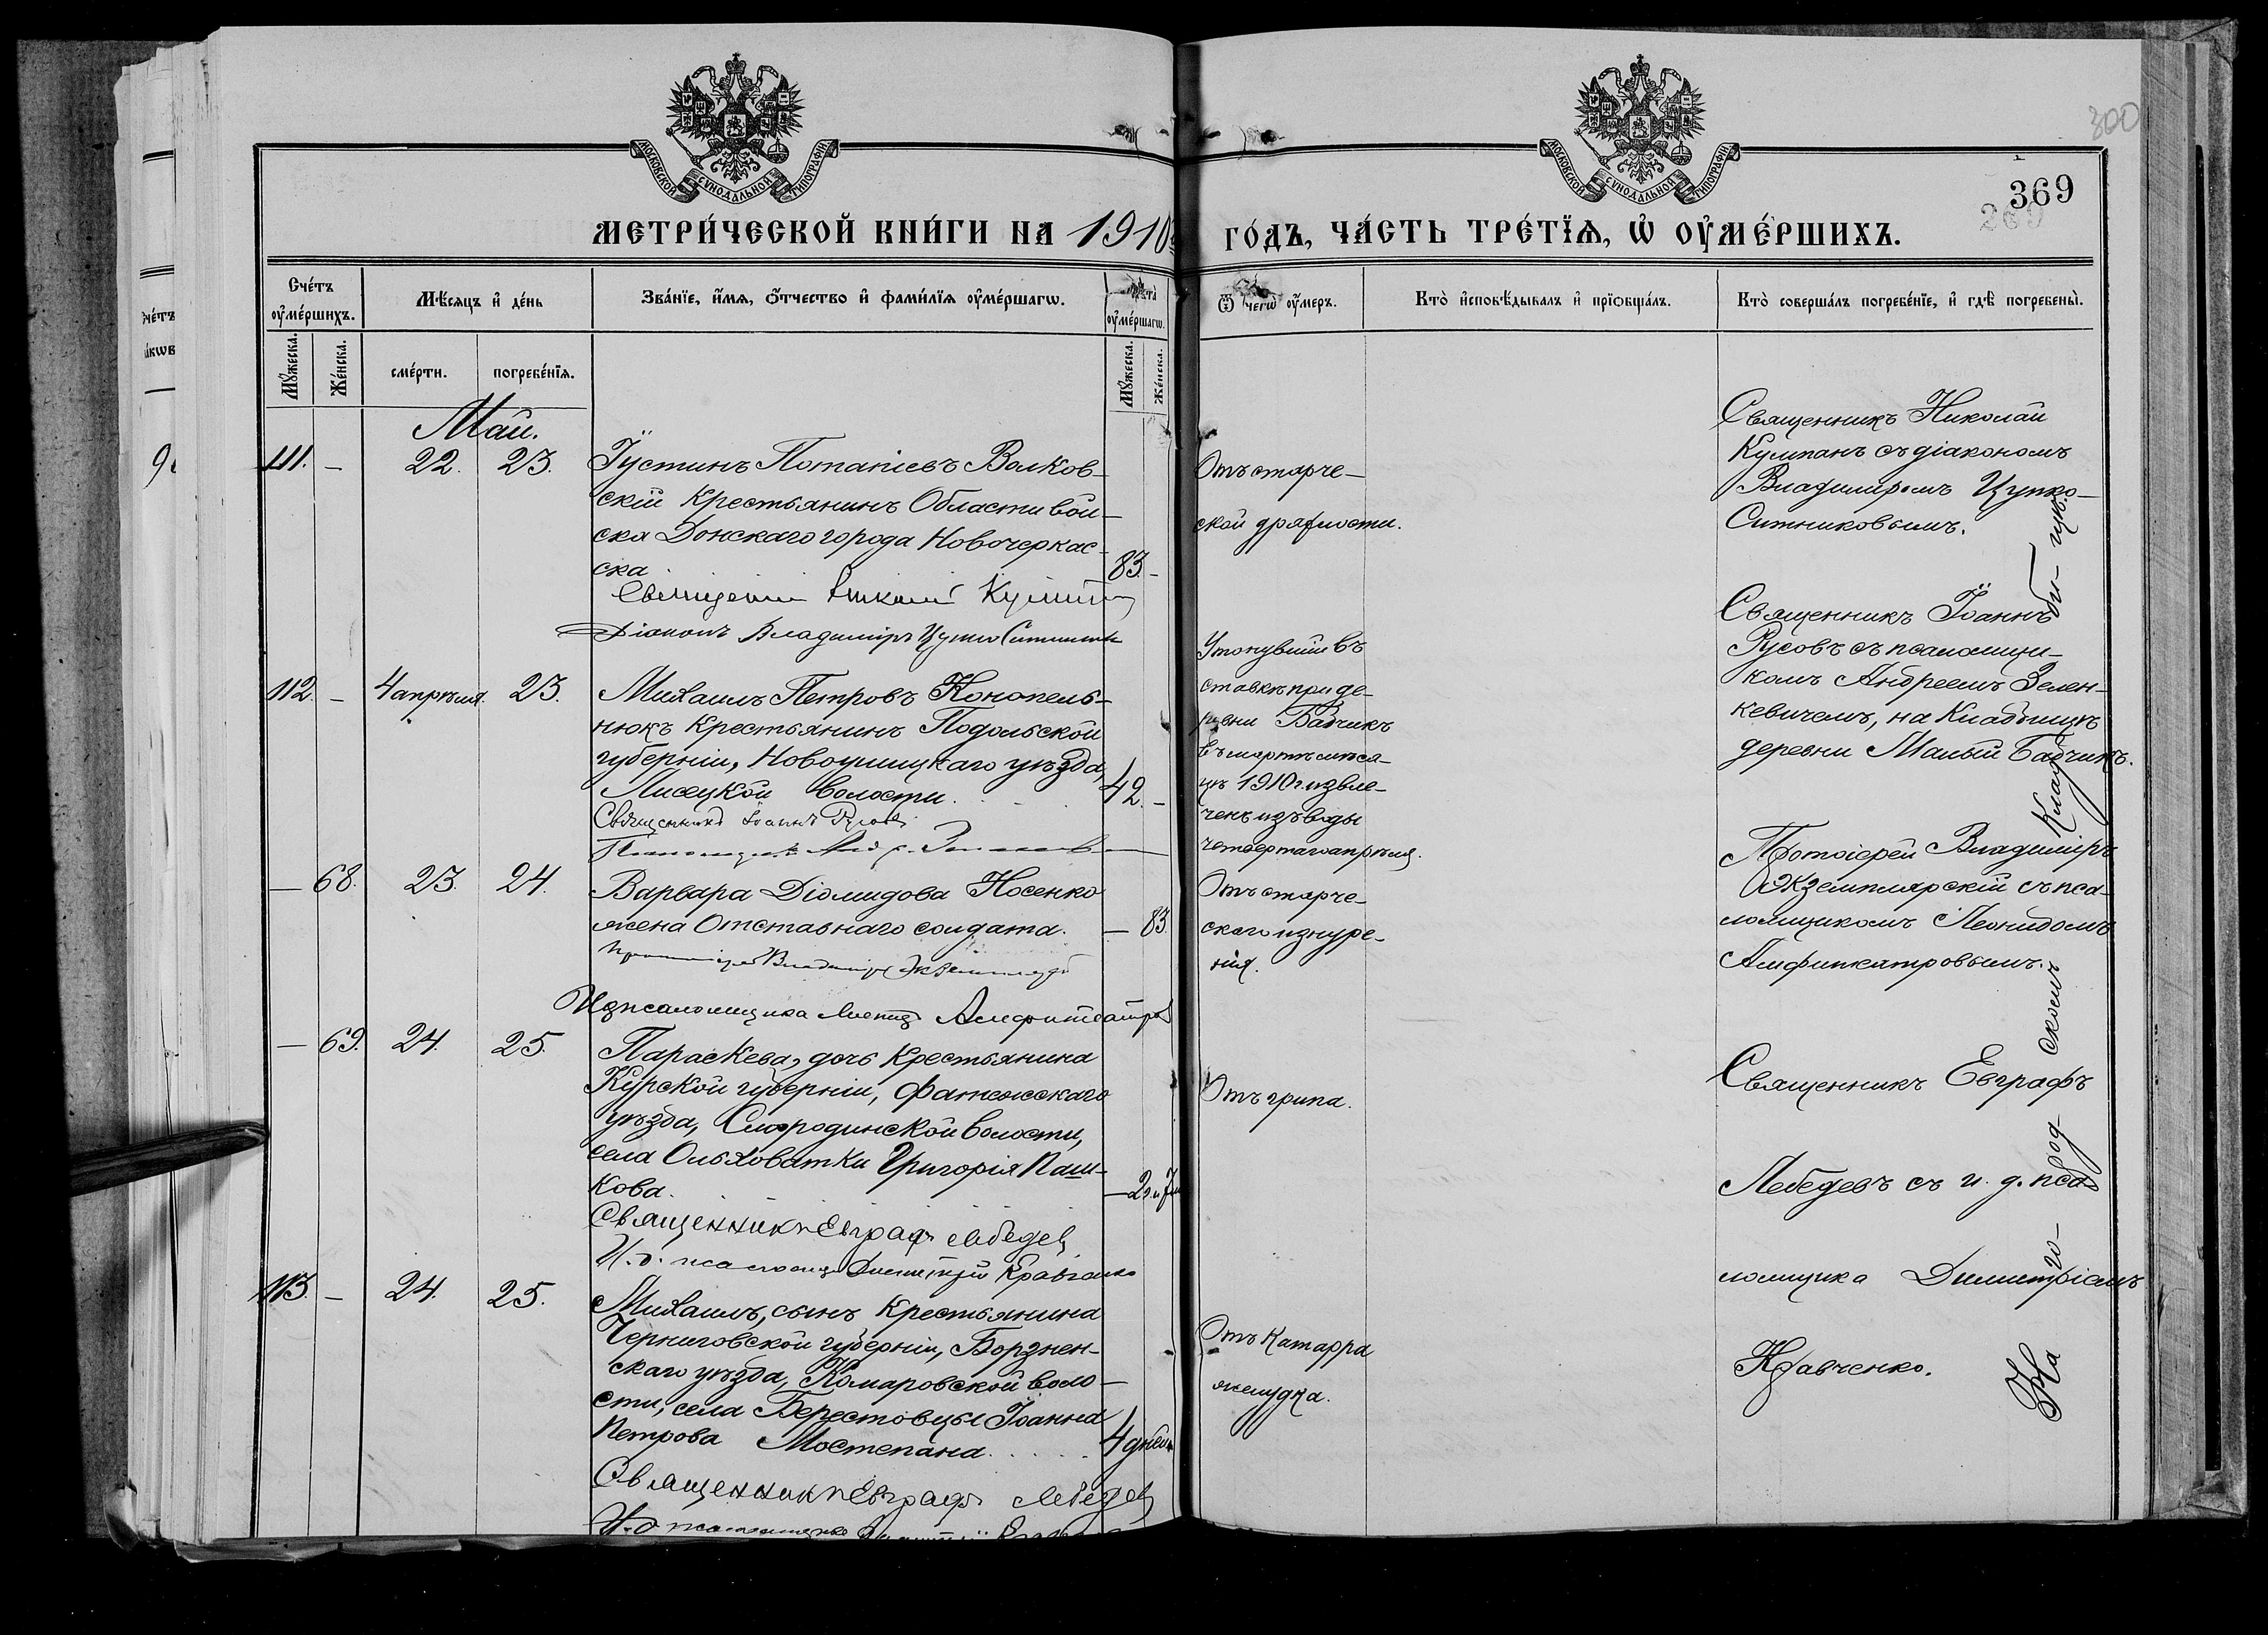 МОСКОВСКОЙ СѴНОДАЛЬНОЙ ТИПОГРАФІИ
МОСКОВСКОЙ СѴНОДАЛЬНОЙ ТИПОГРАФІИ
300
369
269
МЕТРИ́ЧЕСКОЙ КНИ́ГИ НА 1910
ГО́ДЪ, ЧА́СТЬ ТРЕ́ТЇѦ, Ѡ҆ ОУ҆МЕ́РШИХЪ.
Сче́тъ оу҆ме́ршихъ.
Мѣ́сяцъ и҆ де́нь
Зва́нїе, и҆́мя, ѻ҆́тчество и҆ фами́лїя оу҆ме́ршагѡ.
Лѣта̀ оу҆ме́ршагѡ.
Ѿ чегѡ̀ оу҆́меръ.
Кто̀ и҆сповѣ́дывалъ и҆ прїѻбща́лъ.
Кто̀ соверша́лъ погребе́нїе, и҆ гдѣ̀ погребены̀.
Мꙋ́жеска.
Же́нска.
сме́рти.
погребе́нїя.
Мꙋ́жеска.
Же́нска.
Май.
111. – 22. 23.
Іустинъ Потапіевъ Волков-
скій Крестьянинъ Области вой-
ска Донскаго города Новочеркас-
ска 83. –
Священникъ Николай Кулпан
Діаконъ Владиміръ Цупко Ситник
Отъ старче-
ской дряхлости.
Священникъ Николай
Кулпанъ съ діакономъ
Владиміромъ Цупко-
Ситниковымъ.
112. – 4 апрѣля. 23.
Михаилъ Петровъ Конопель-
нюкъ Крестьянинъ Подольской
губерніи, Новоушицкаго уѣзда,
Лисецкой волости. 42. –
Священникъ Іоаннъ Русовъ
Псаломщикъ
Утонувшій въ
ставкѣ при де-
ревни Бабчикъ
въ мартѣ мѣся-
цѣ 1910 г. извле-
ченъ изъ воды
четвертаго апрѣля.
Священникъ Іоаннъ
Русовъ съ псаломщи-
комъ Андреемъ Зелен-
кевичемъ, на Кладбищѣ
деревни Малый Бабчикъ.
– 68. 23. 24.
Варвара Діомидова Носенко
жена Отставнаго солдата. – 83.
Протоіерей Владиміръ Экземплярскій
И д псаломщика Леонидъ Амфитеатров
Отъ старче-
скаго изнуре-
нія.
Протоіерей Владиміръ
Экземплярскій съ пса-
ломщикомъ Леонидомъ
Амфитеатровымъ.
– 69. 24. 25.
Параскева, дочь Крестьянина
Курской губерніи, Фатежскаго
уѣзда, Смородинской волости,
села Ольховатки Григорія Паш-
кова. – 2 г. и 7 м
Священникъ Евграфъ Лебедев
И. д. псаломщ Димитрій Кравченко
Отъ грипа.
Священникъ Евграфъ
Лебедевъ съ и. д. пса-
ломщика Димитріемъ
Кравченко.
113. – 24. 25.
Михаилъ, сынъ Крестьянина
Черниговской губерніи, Борзнен-
скаго уѣзда, Комаровской воло-
сти, села Берестовцы Іоанна
Петрова Мостепана. 4 дней
Священникъ Евграфъ Лебедев
И. д псаломщика
Отъ Катарра
желудка.
На го-
родскомъ
Клад-
би-
щѣ.